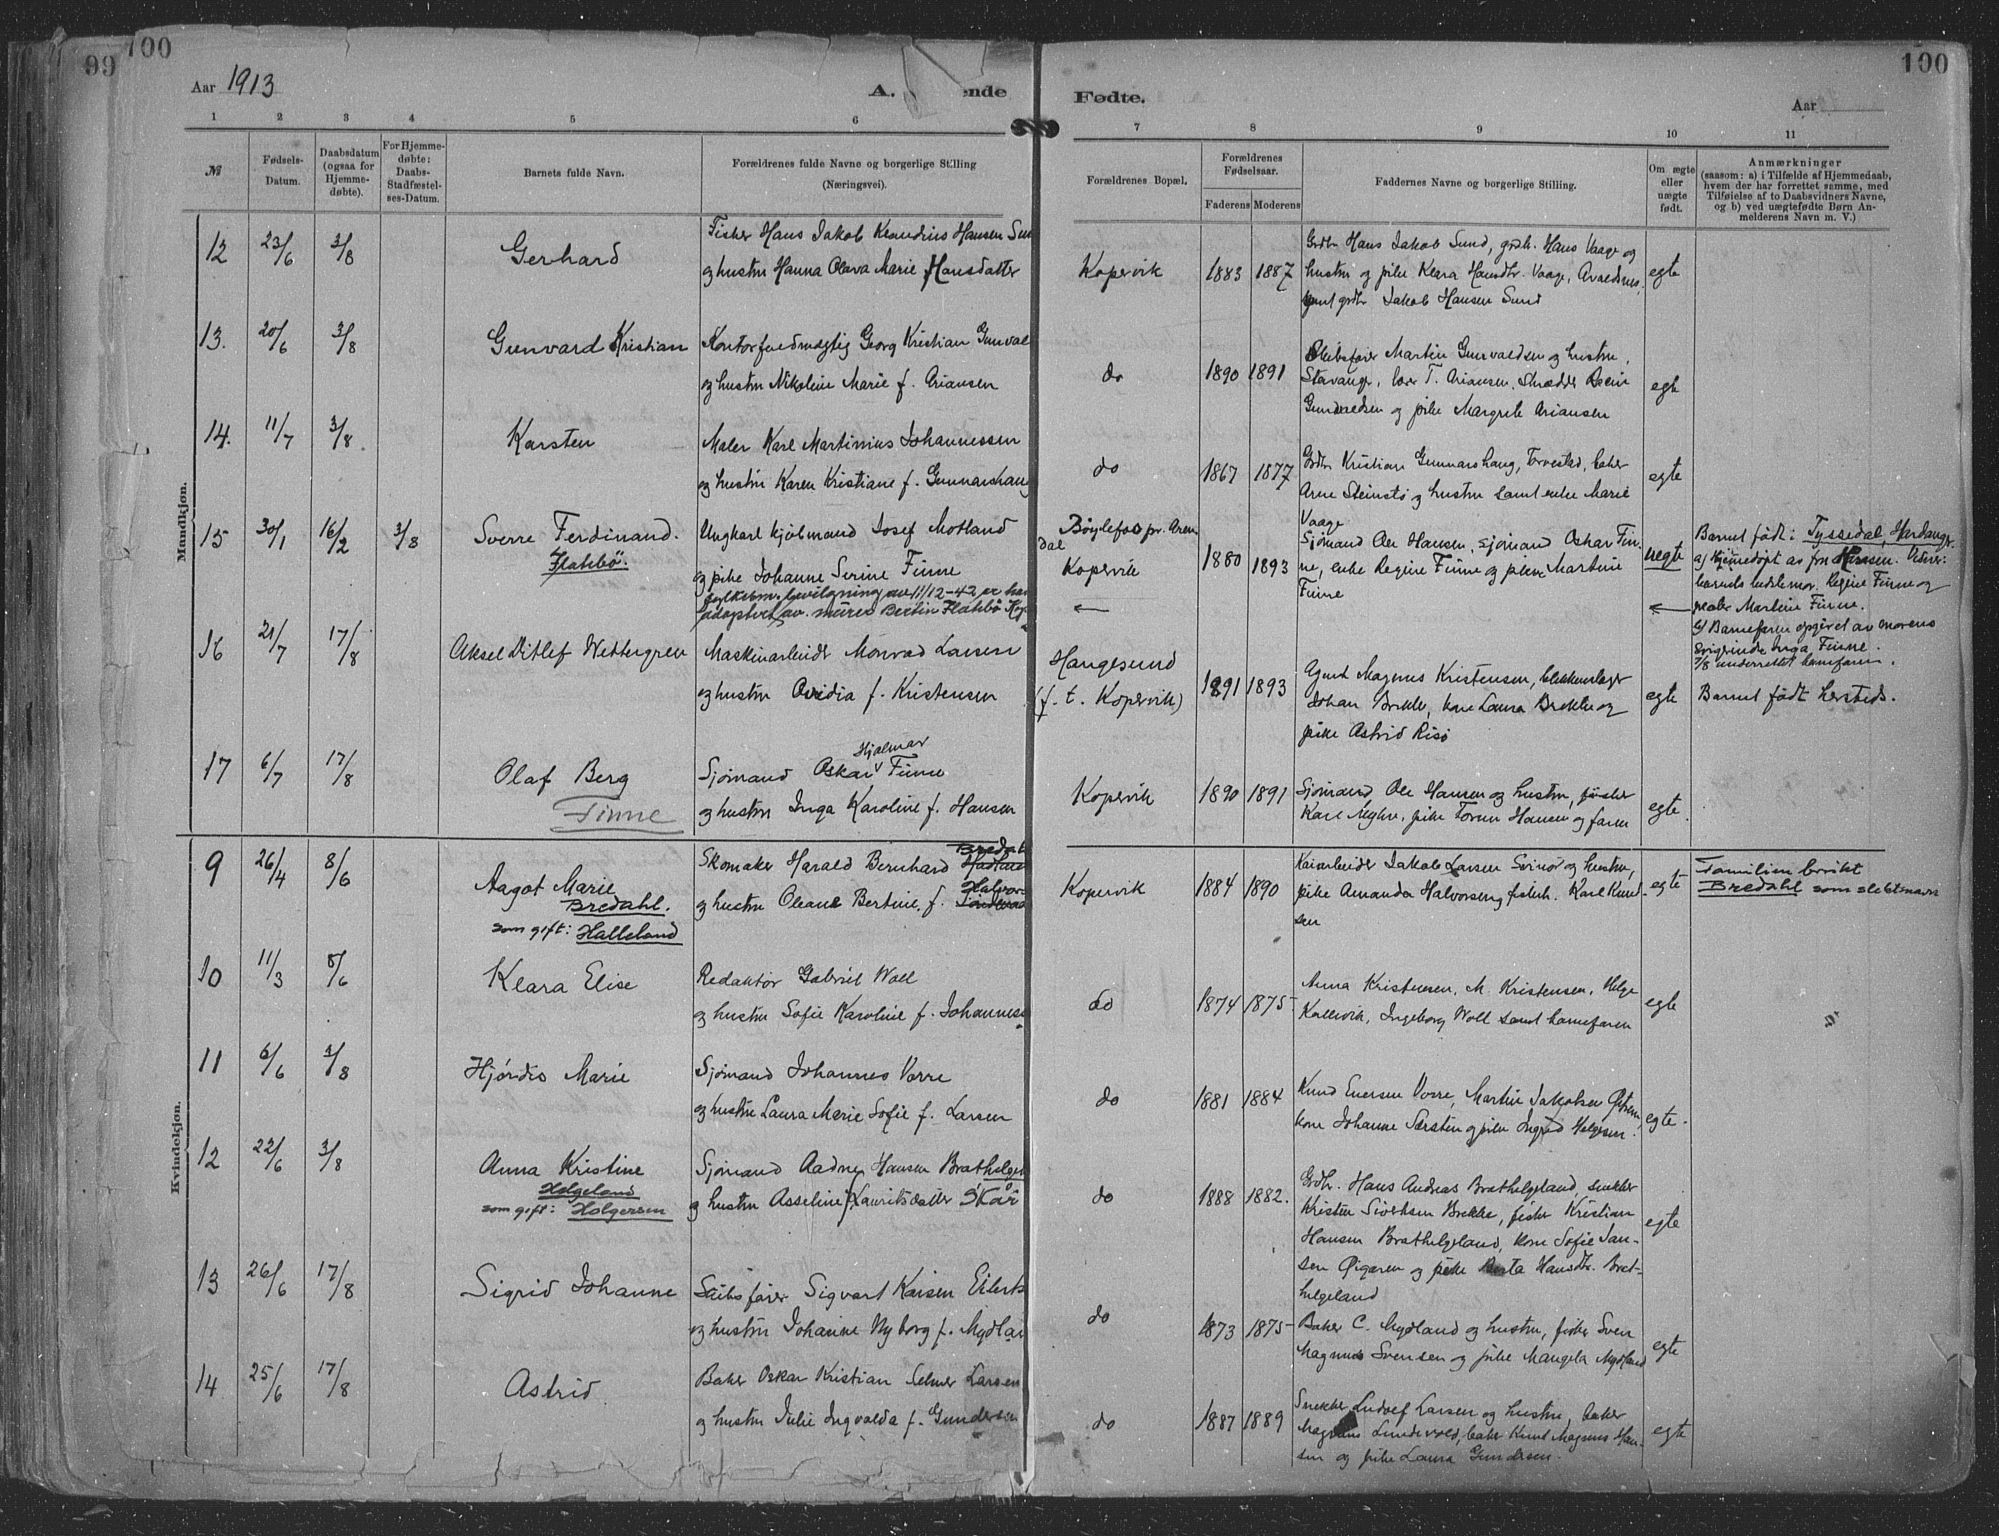 99 100
100
Aar 1913
A. ende
Fødte.
Aar
1 2 3 4 5 6
7 8 9 10 11
№
Fødsels-Datum.
Daabsdatum (ogsaa for Hjemme-døbte).
For Hjemme-døbte: Daabs-Stadfæstel-ses-Datum.
Barnets fulde Navn.
Forældrenes fulde Navne og borgerlige Stilling (Næringsvei).
Forældrenes Bopæl.
Forældrenes Fødselsaar.
Faderens Moderens
Faddernes Navne og borgerlige Stilling.
Om ægte eller uægte født.
Anmærkninger
(saasom: a) i Tilfælde af Hjemmedaab,
hvem der har forrettet samme, med
Tilføielse af to Daabsvidners Navne,
og b) ved uægtefødte Børn An-
melderens Navn m. V.)
Mandkjøn.
12 23/6 3/8 Gerhard
Fisker Hans Jakob Klaudius Hansen Sund
og hustru Hanna Olava Marie Hansdatter
Kopervik 1883 1887
Grdbr Hans Jakob Sund, grdb. Hans Vaage og
hustru og pike Klara Hansdtr. Vaage, Avaldsnes,
samt grdbr Jakob Hansen Sund
egte
13. 20/6 3/8 Gunvard Kristian
Kontorfuldmægtig Georg Kristian Gunval
og hustru Nikoline Marie f. Ariansen
do 1890 1891
Skibsfører Martin Gunvaldsen og hustru,
Stavanger, T. Ariansen, Skrædder
Gunvaldsen og pike Margrete Ariansen
egte
14. 11/7 3/8 Karsten
Maler Karl Martinius Johannessen
og hustru Karen Kristiane f. Gunnarshaug
do 1867 1877
Grdbr Kristian Gunnarshaug, Torvestad, baker
Arne Steinstø og hustru samt enke Marie
Vaage
egte
15 30/1 16/2 3/8 Sverre Ferdinand.
Flatebö.
Ungkarl kjølmand Josef Motland
og pike Johanne Serine Finne
fylkesm. bevilgning av 11/12-42 er han
adoptert av murer Bertin Flatebö Kop
Bøylefos pr. Aren
dal
Kopervik
1880 1893
Sjømand Ole Hansen, sjømand Oskar Fin-
ne, enke Regine Finne og pike Martine
Finne
uegte
Barnet født i Tyssedal, Hardanger.
a) Hjemmedøpt av frn Hansen. Vidner:
barnets bedstemor. Regine Finne og
pike Martine Finne.
b) Barnefaren opgivet av morens
svigerinde Inga Finne.
7/8 underrettet barnefaren.
16 21/7 17/8 Aksel Ditlef Wettergren
Maskinarbeider Monrad Larsen
og hustru Ovidia f. Kristensen
Haugesund
(f. t. Kopervik)
1891 1893
Gurd Magnus Kristensen, blikkenslager
Johan Brekke, kone Laura Brekke og
pike Astrid Risø
egte
Barnet født hersteds.
17 6/7 17/8 Olaf Berg
Finne
Hjalmar
Sjømand Oskar Finne
og hustru Inga Karoline f. Hansen
Kopervik 1890 1891
Sjømand Ole Hansen og hustru, fisker
Karl Myhre, pike Torine Hansen og faren
egte.
Kvindekjøn.
9 26/4 8/6 Aagot Marie
Bredahl.
som gift: Halleland
Bredahl
Skomaker Harald Bernhard
Halvor-
og hustru Oleane Bertine f.
Kopervik 1884 1890
Kaiarbeider Jakob Larsen Svinø og hustru,
pike Amanda Halvorsen, fiskerh. Karl Knud-
sen
egte
Familien brukt
Bredahl som slektsnavn
10 11/3 8/6 Klara Elise
Redaktør Gabriel Woll
og hustru Sofie Karoline f. Johanness
do 1874 1875
Anna Kristensen, M. Kristensen, Helge
Kallevik, Ingeborg Woll samt barnefaren
egte
11 6/6 3/8 Hjørdis Marie
Sjømand Johannes Vorre
og hustru Laura Marie Sofie f. Larsen
do 1881 1884
Knud Eversen Vorre, Martin Jakobsen
kone Johanne og pike Ingrid Helgesen.
egte.
12 22/6 3/8 Anna Kristine
Helgeland
som gift: Holgersen
Sjømand Aadne Hansen Brathelgel
og hustru Asseline f. Lauritsdatter Skår
do 1888 1882.
Grdbr. Hans Andreas Brathelgeland, snekker
Kristen Sivertsen Brekke, fisker Kristian
Hansen Brathelgeland, kone Sofie Jan-
sen Øigaren og pike Berta Hansdtr. Brat-
helgeland
egte
13 26/6 17/8 Sigrid Johanne
Skibsfører Sigvart Kaisen Eilerts
og hustru Johanne Nyborg f. Mydlan
do 1873 1875
Baker C. Mydland og hustru, fisker Sven
Magnus Svensen og pike Mangela Mydland
egte
14 25/6 17/8 Astrid
Baker Oskar Kristian Selmer Larsen
og hustru Julie Ingvalda f. Gundersen
do 1887 1889
Snekker Ludvig Larsen og hustru, baker
Magnus Lundevold, baker Knut Magnus Han-
sen og pike Laura Gundersen.
egte